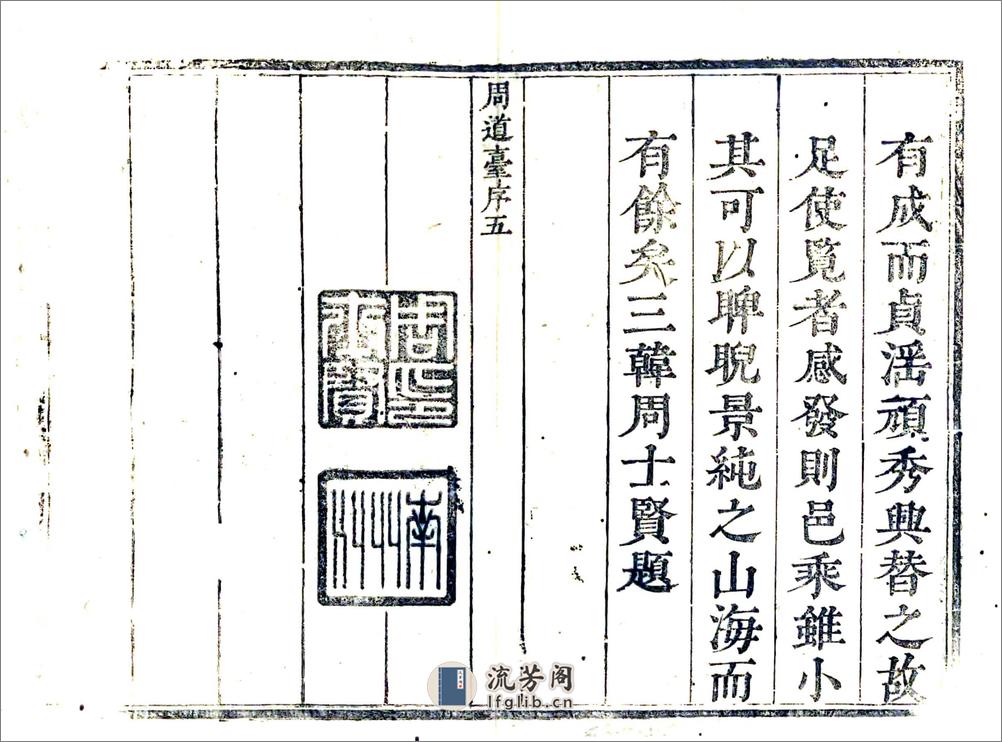 有成而貞滛頑秀興替之故
足使覧者感發則邑乘雖小
其可以睥睨景純之山海而
有餘矣三韓周士賢題
周道臺序五
周士賢印
流芳阁
lfglib.cn